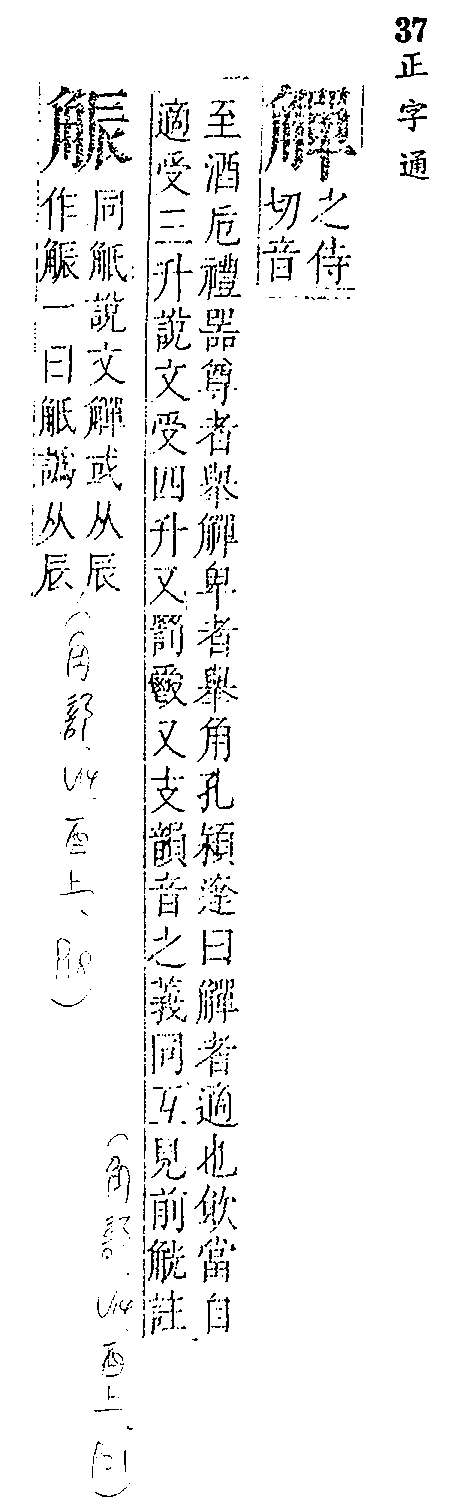 37
正字通
觶
之侍
切音
至酒卮禮器尊者舉觶卑者舉角孔穎達曰觶者適也飲當自
適受三升說文受四升又罰爵又支韻音之義同互見前觥註
𧣨
同觗說文觶或从辰
作𧣨一曰觗譌从辰
(角部、V14、酉上、
(角部、V14、酉上、